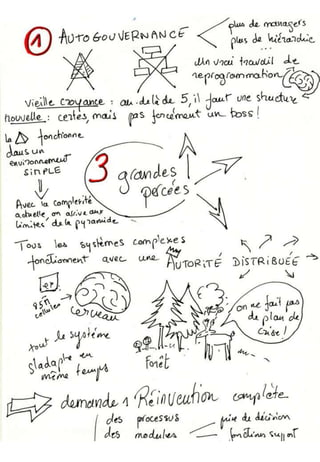 1 AUTOGOUVERNANCE
plus de managers
plus de hiérarchie
Un vrai travail de
reprogrammation
Vieille croyance : au-delà de 5, il faut une structure
nouvelle : certes, mais pas forcément un boss!
le △ fonctionne
dans un
environnement
SIMPLE
Avec la complexité
actuelle, on arrive aux
limites de la pyramide
3 grandes
percées
Tous les systèmes complexes
fonctionnent avec une AUTORITÉ DISTRIBUÉE
cellules
CERVEAU
tout le système
s'adapte en
même temps
Forêt
on ne fait pas
de plan de
crise!
demande 1 Réinvention complète
des processus
des modules
prise de décision
fonctions support